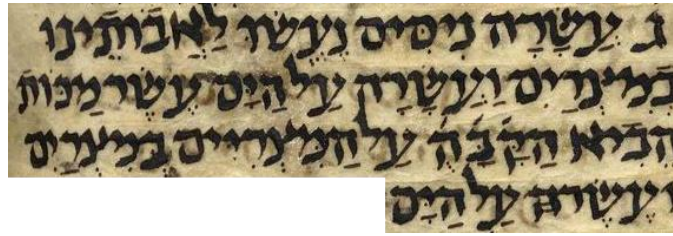 ג עֲשָׂרָה נִיסִּים נֶעֱשׂוּ לַאֲבוֹתֵינוּ
בְּמִצְרַיִם וַעֲשָׂרָה עַל הַיָּם עֶשֶׂר מַכּוֹת
הֵבִיא הַקָּבָּ֗ה֗ עַל הַמִּצְרִיִּים בְּמִצְרַיִם
וַעֲשָׂרָה עַל הַיָּם